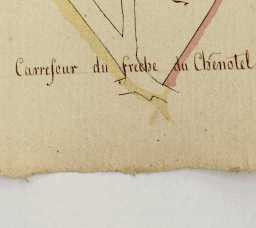 Carrefour du freche du Chênotel